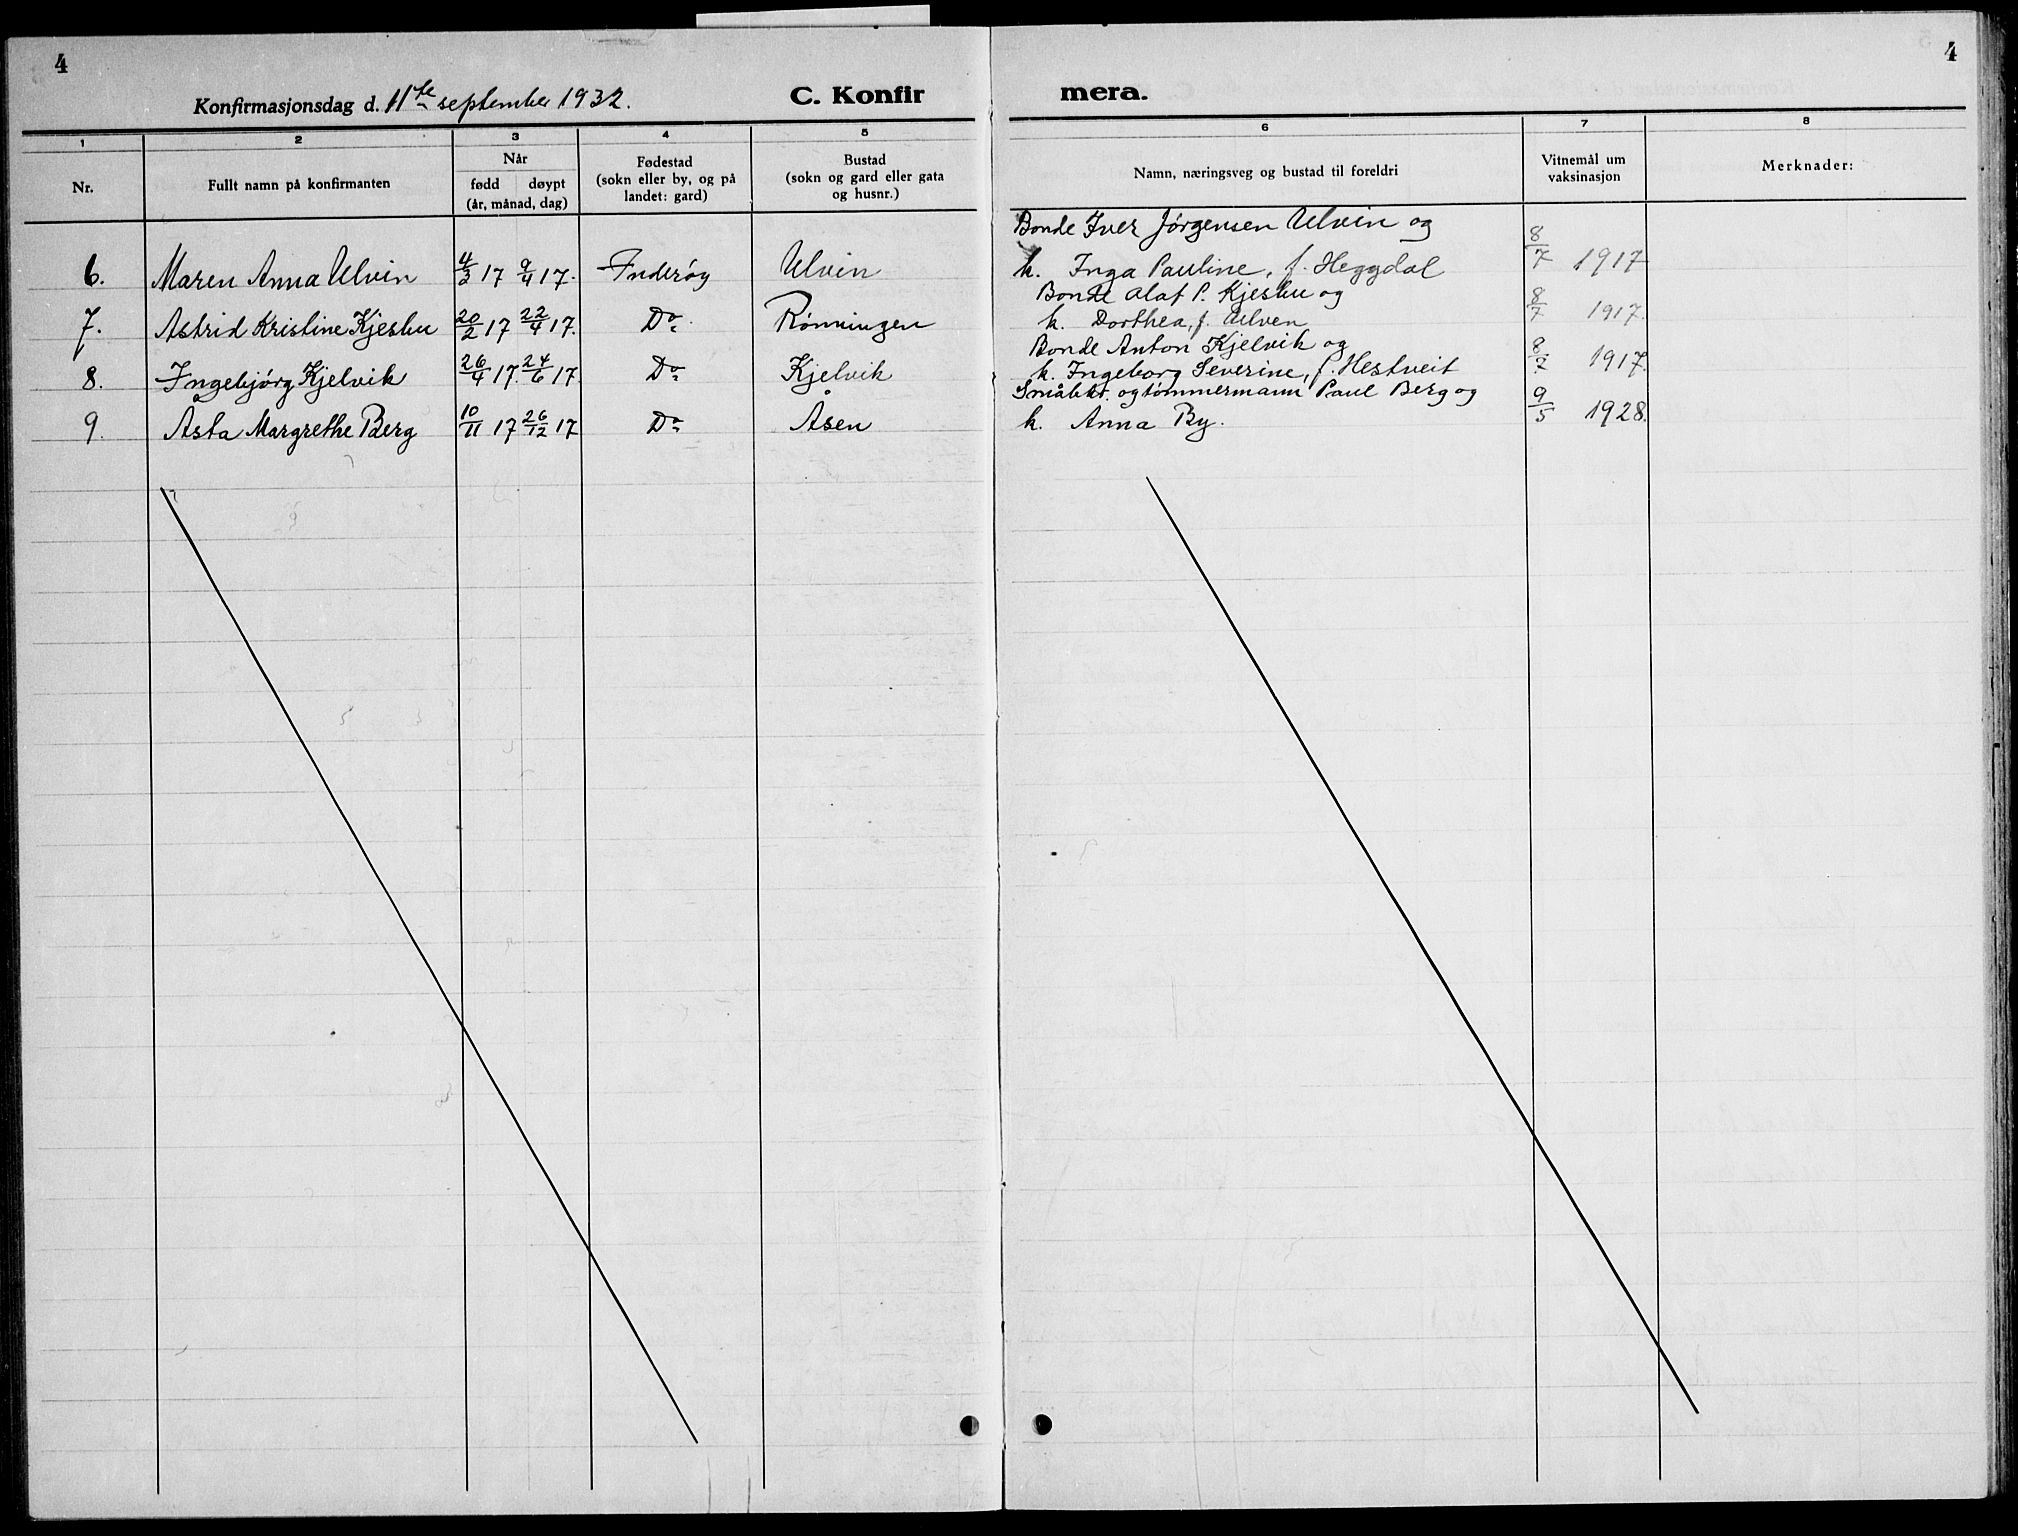 4
Konfirmasjonsdag d. 11te september 1932.
C. Konfir
1 2 3 4 5
Nr.
Fullt namn på konfirmanten
Når
fødd døypt
(år, månad, dag)
Fødestad
(sokn eller by, og på
landet: gard)
Bustad
(sokn og gard eller gata
og husnr.)
6. Maren Anna Ulvin 4/3 17 9/4 17. Inderøy Ulvin
7. Astrid Kristine Kjeshu 20/2 17 22/4 17. Do Rønningen
8. Ingebjørg Kjelvik 26/4 17. 24/6 17 Do Kjelvik
9. Åsta Margrethe Berg 10/11 17 26/12 17 Do Åsen
4
mera.
6 7 8
Namn, næringsveg og bustad til foreldri
Vitnemål um
vaksinasjon
Merknader:
Bonde Iver Jørgensen Ulvin og
k. Inga Pauline, f. Heggdal 8/7 1917
Bonde Olaf P. Kjeshu og
k. Dorthea, f. Ulven 8/7 1917.
Bonde Anton Kjelvik og
k. Ingeborg Severine, f. Hestveit 8/7 1917.
Småbkr. og tømmermann Paul Berg og
k. Anna By. 9/5 1928.